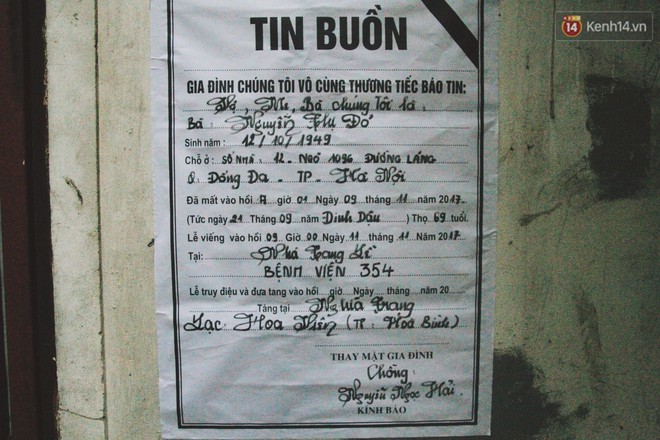 14 Kenh14.vn
TIN BUỒN
GIA ĐÌNH CHÚNG TÔI VÔ CÙNG THƯƠNG TIẾC BÁO TIN:
Vợ, Mẹ, Bà chúng tôi là:
Bà: Nguyễn Thị Đỏ
Sinh năm: 12/10/1949
Chỗ ở: SỐ NHÀ: 12 - NGÕ 1096 ĐƯỜNG LÁNG
Q Đống Đa - TP - Hà Nội
Đã mất vào hồi giờ 01 Ngày 09 tháng 11 năm 2017
(Tức ngày 21 Tháng 09 năm Đinh Dậu) Thọ 69 tuổi.
Lễ viếng vào hồi 09 Giờ 00 Ngày 11 tháng 11 năm 2017
Tại: Nhà Tang Lễ
BỆNH VIỆN 354
Lễ truy điệu và đưa tang vào hồi giờ Ngày tháng năm 20
Táng tại Nghĩa Trang
Lạc Hoa Viên (TP: Hòa Bình)
THAY MẶT GIA ĐÌNH
Chồng:
Nguyễn Ngọc Hải.
KÍNH BÁO